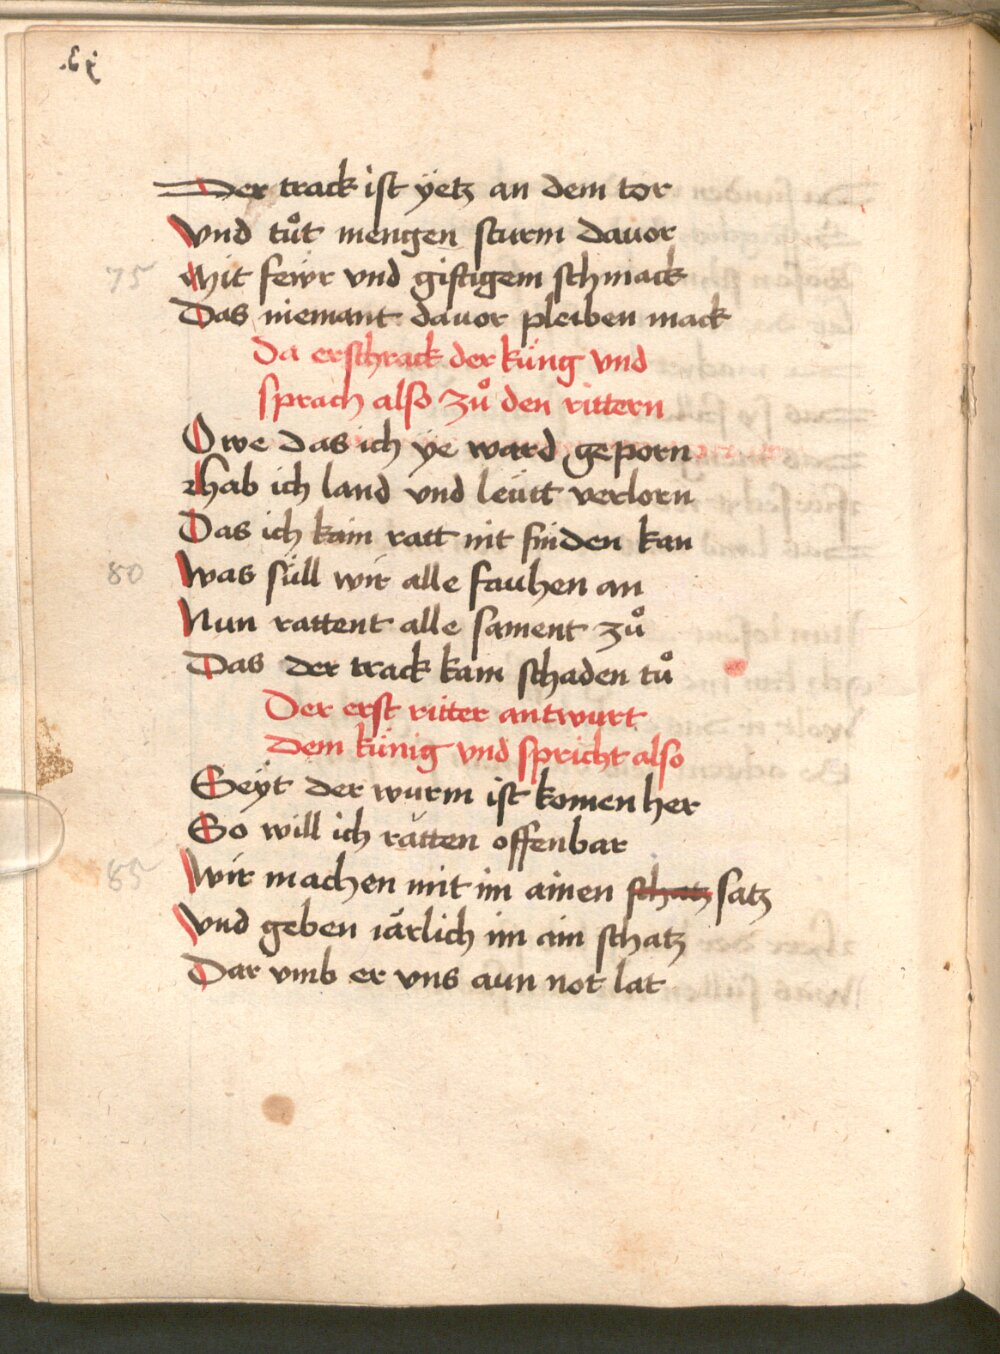 Der track ist ÿetz an dem tor
Vnd tůt mengen sturm dauor
75 Mit fewr vnd giftigem schmack
Das niemant dauor pleiben mack
Da erschrack der küng vnd
sprach also zů den rittern
Owe das ich ÿe ward geporn
Hab ich land vnd leütt verlorn
Das ich kain ratt nit finden kan
80 Was süll wir alle fauhen an
Nun rattent alle sament zů
Das der track kain schaden tů
Der erst ritter antwurt
dem künig vnd spricht also
Seÿt der wurm ist komen her
So will ich rätten offenbar
85 Wir machen mit im ainen schatz satz
Vnd geben iärlich im ain schatz
Dar vmb er vns aun not lat